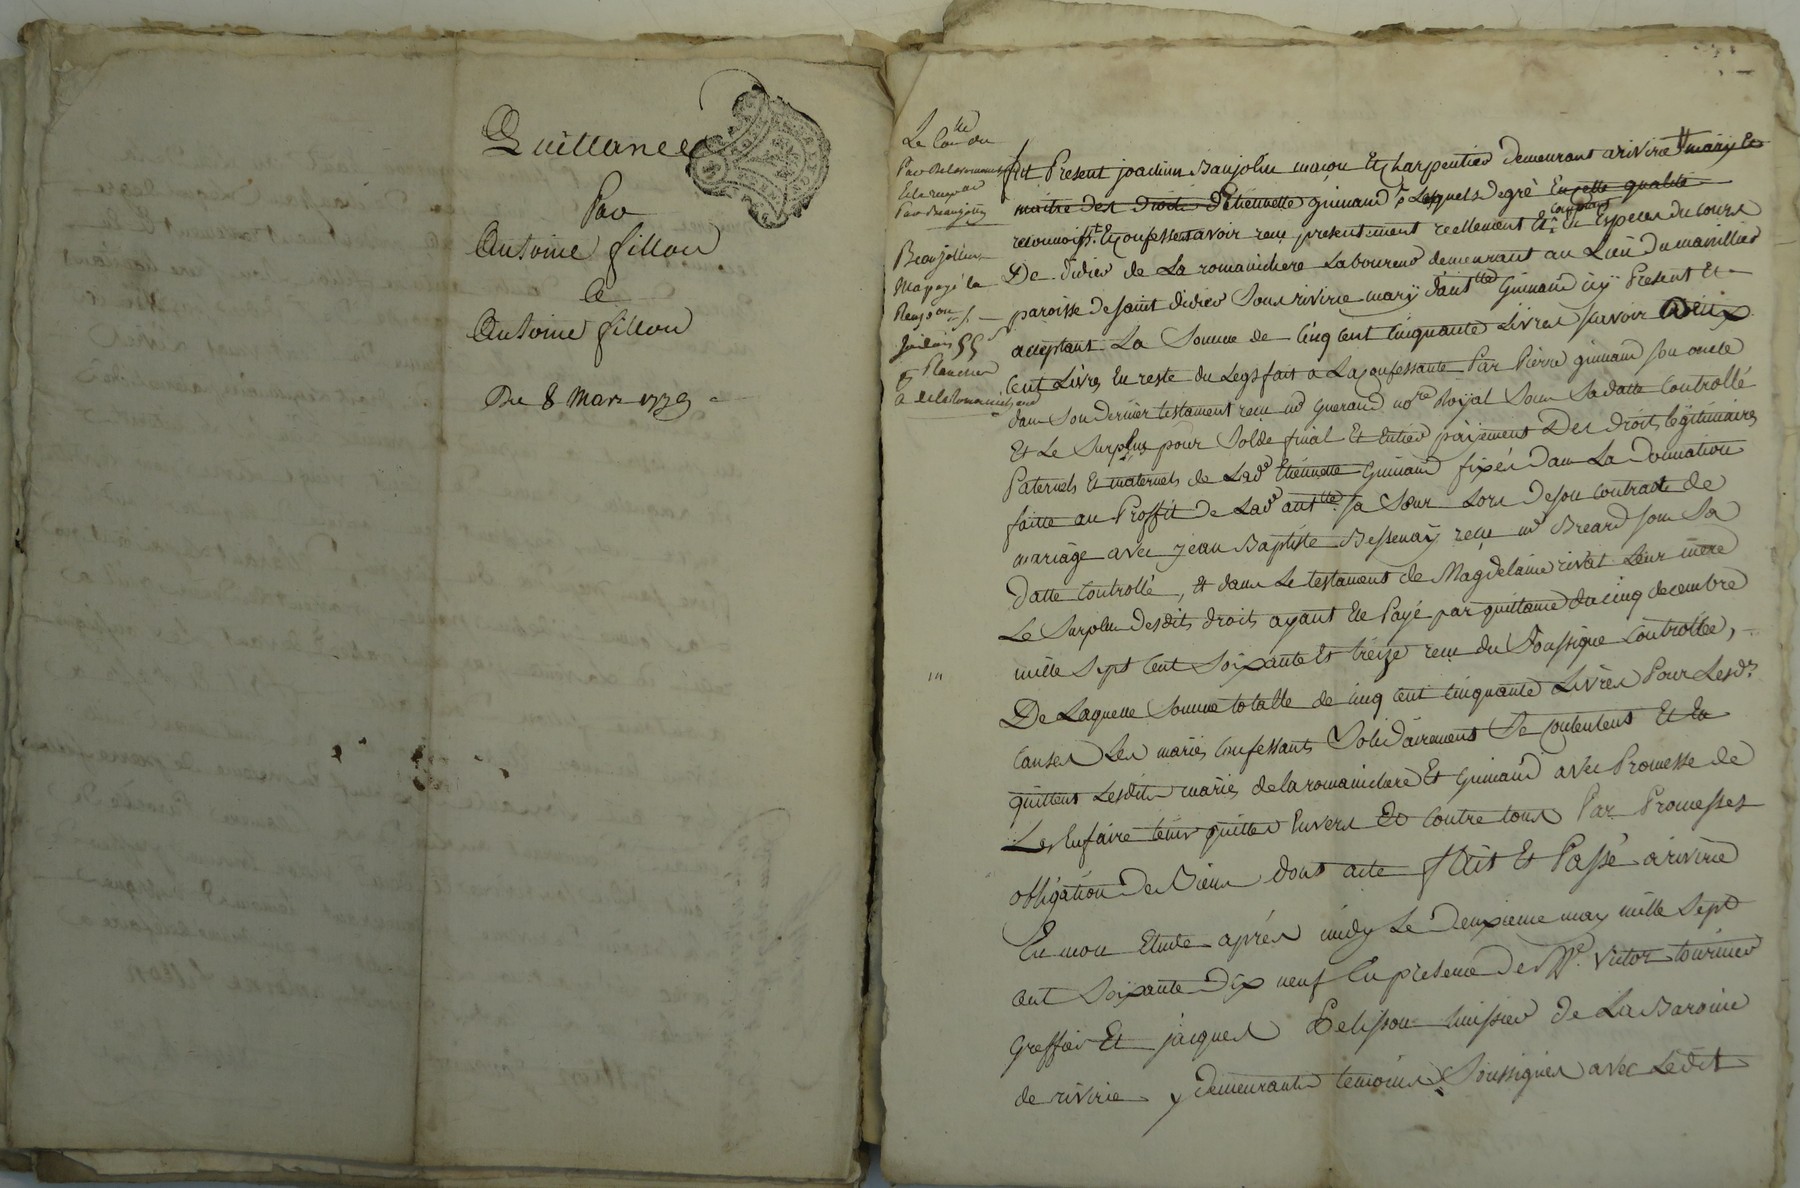 Quittance
Par
Antoine fillon
a
Antoine fillon
Du 8 Mars 1779
Le Con.lle du
Par Delaromanichere
Et la resp.on
Par Beaujolin
Beaujolin
Ma payé la
Resp.on
a delaromanichere
fut Present joachim Baujolin maçon Et charpentier demeurant a riverie mary Et
maitre des droits d'Etiennette guinand Lesquels de gré En cette qualité
reconnoiss.t Et confessent avoir reçu presentement reellement Et comptant En Especes du cours
De Didier de La romanichere Laboureur demeurant au Lieu du manillier
paroisse de saint didier Sous riverie mary d'ant.tte Guinand icy Present Et
acceptant La Somme de Cinq Cent Cinquante Livres sçavoir deux
Cent Livres En reste du Legs fait a La confessante Par Pierre guinand son oncle
dans son dernier testament reçu m.e Guerand no.re Royal Sous Sa datte Controllé
Et Le Surplus pour Solde final Et Entier paÿement Des droits legitimaires
Paternels Et maternels de Lad.e Etiennette Guinand fixés dans La Donnation
faitte au Proffit de Lad.e ant.tte sa Sœur Lors de son Contract de
mariage avec jean Baptiste Bessenay reçu m.e Breard sous Sa
datte Controllé, Et dans Le testament de Magdelaine rivat Leur mere
Le Surplus desdits droits ayant Eté Payé par quittance du cinq decembre
mille Sept Cent Soixante Et treize reçu du Soussigné Controllée,
De Laquelle Somme totalle de Cinq Cent Cinquante Livres Pour Lesd.es
Causes Les mariés Confessants Solidairement Se Contentent Et En
quittent Lesdits mariés de la romanichere Et Guinand avec Promesse de
Les En faire tenir quittes Envers Et Contre tous Par Promesses
obligation de Biens dont acte fait Et Passé a riverie
En mon Etude après midy Le Deuxieme may mille Sept
Cent Soixante Dix neuf En presence de M.e Victor tournier
Greffier Et jacques Pelisson huissier de La Baronie
de riverie y demeurants temoins Soussignés avec Ledit